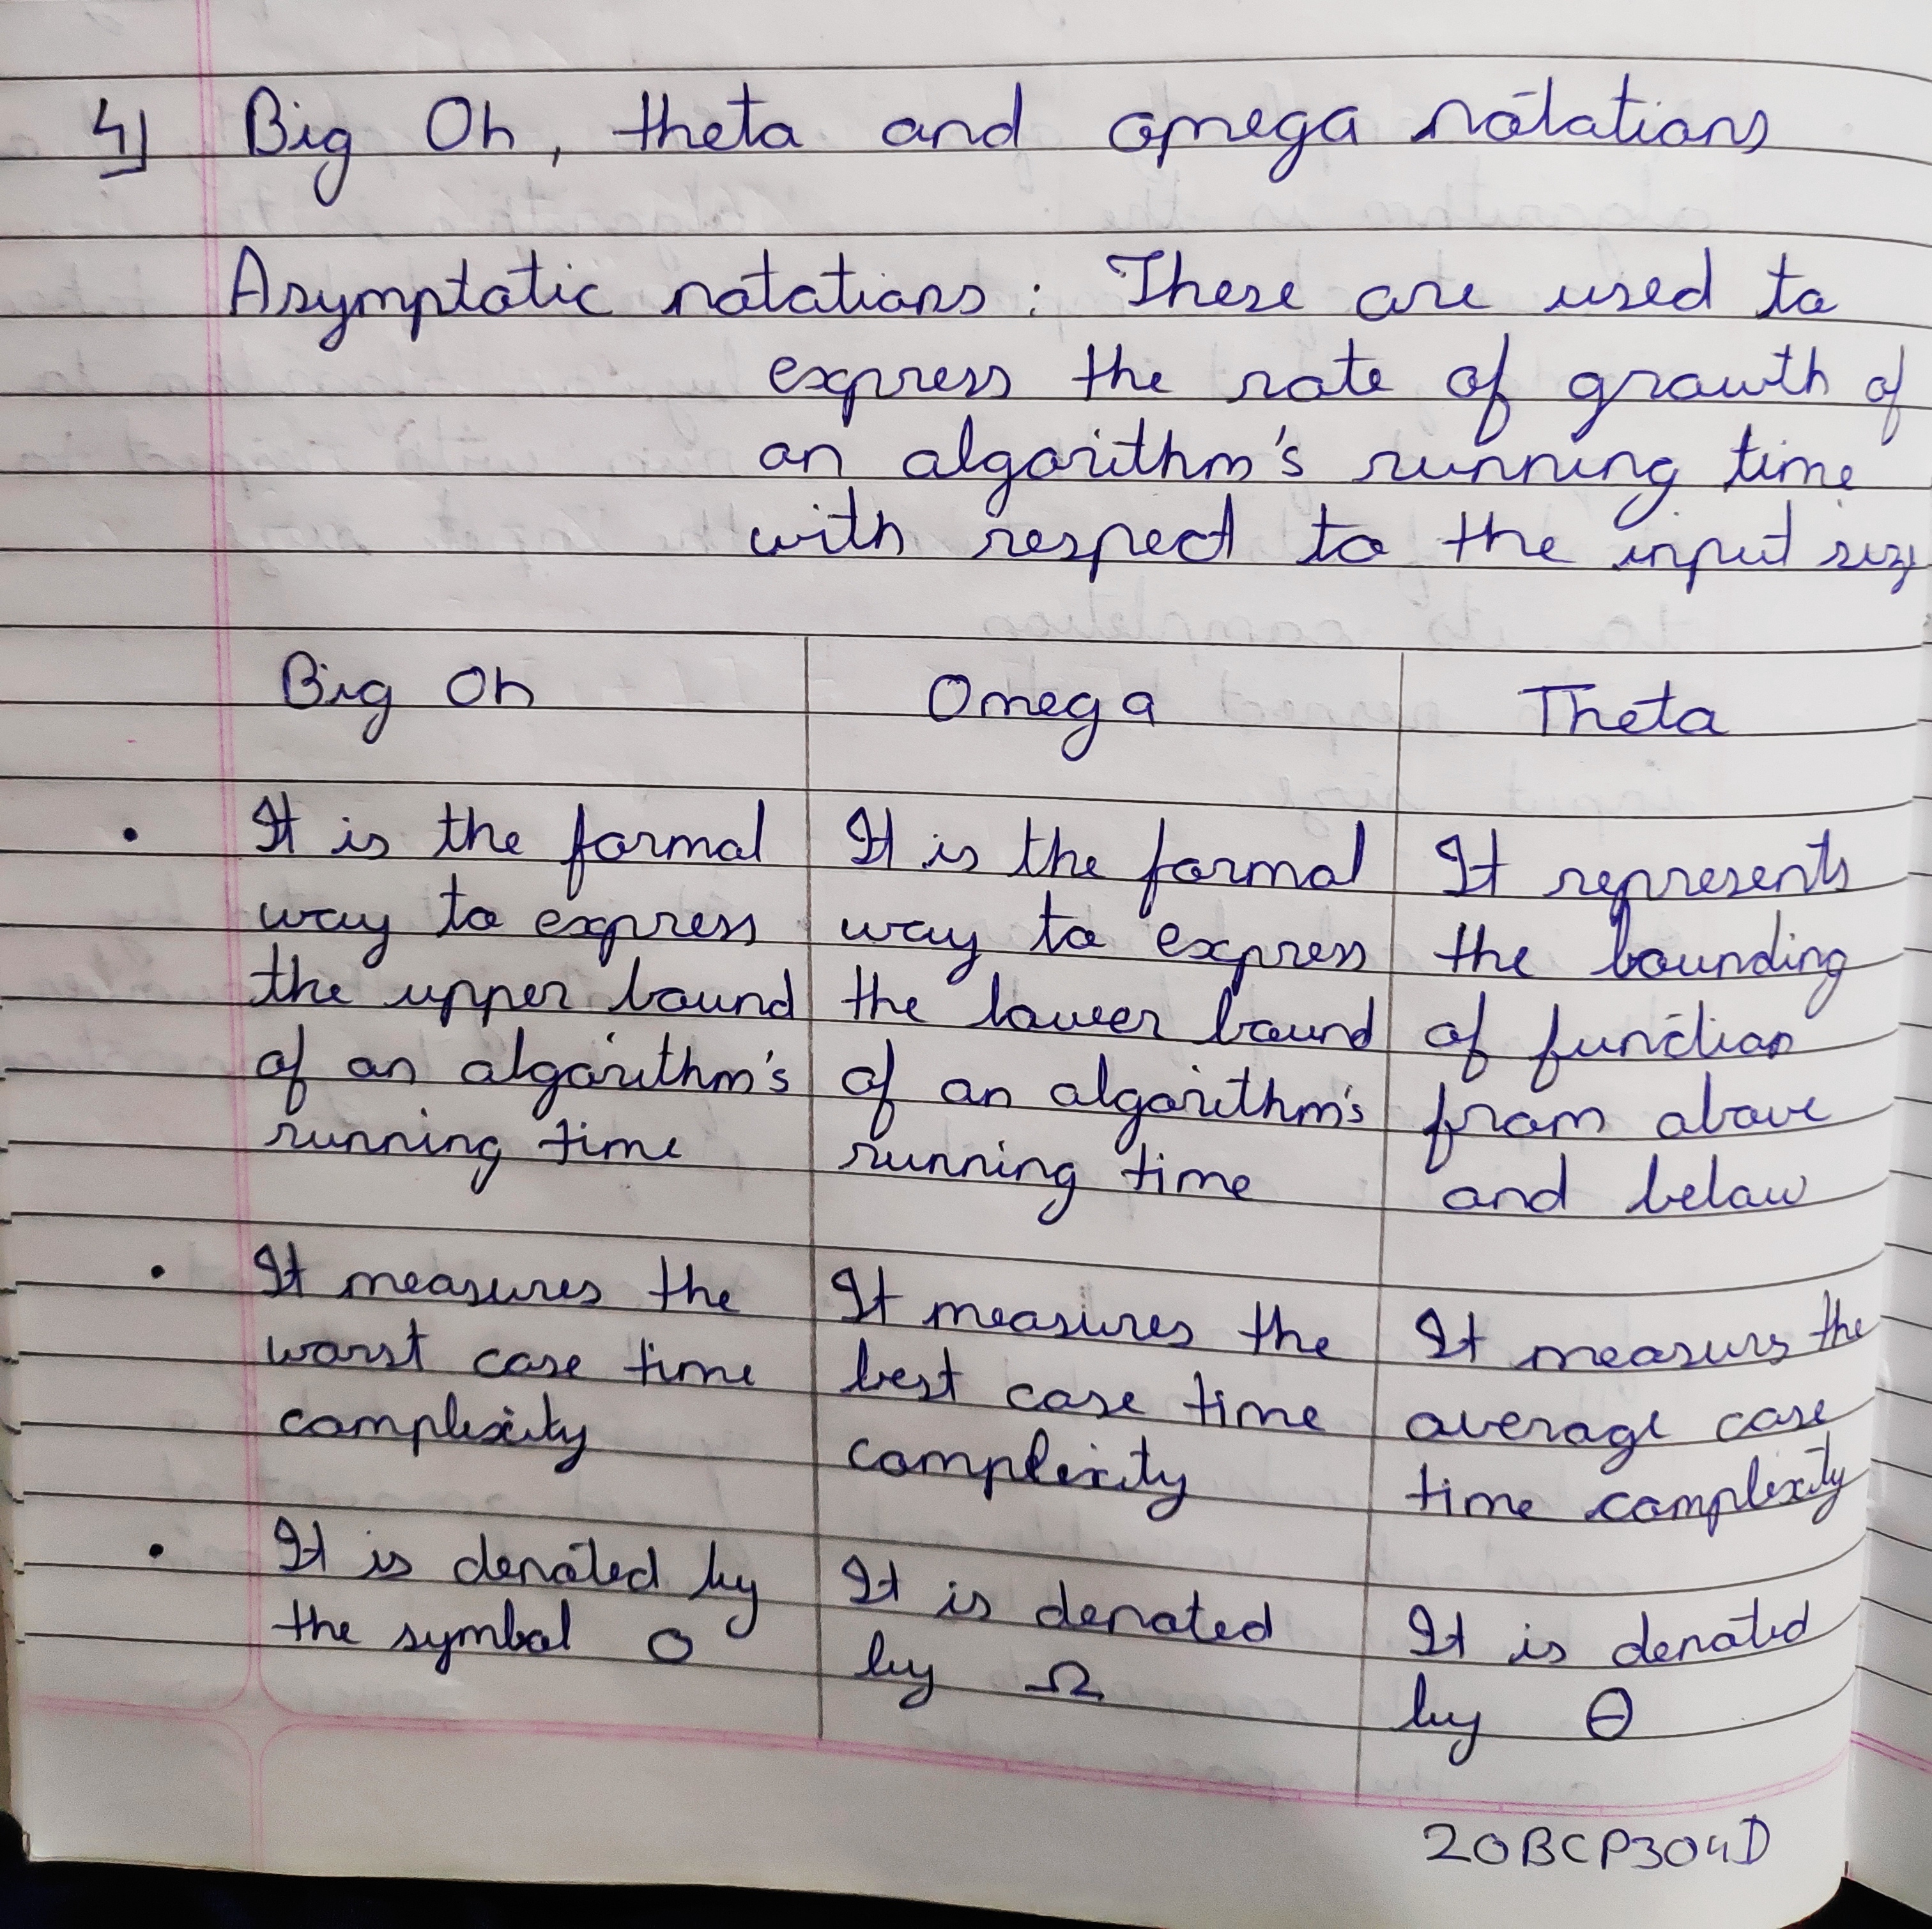 4] Big Oh, theta and omega notations
Asymptotic notations : These are used to
express the rate of growth of
an algorithm's running time
with respect to the input size
Big Oh
Omega
Theta
• It is the formal
way to express
the upper bound
of an algorithm's
running time
It is the formal
way to express
the lower bound
of an algorithm's
running time
It represents
the bounding
of function
from above
and below
• It measures the
worst case time
complexity
It measures the
best case time
complexity
It measures the
average case
time complexity
• It is denoted by
the symbol O
It is denoted
by Ω
It is denoted
by Θ
20BCP304D